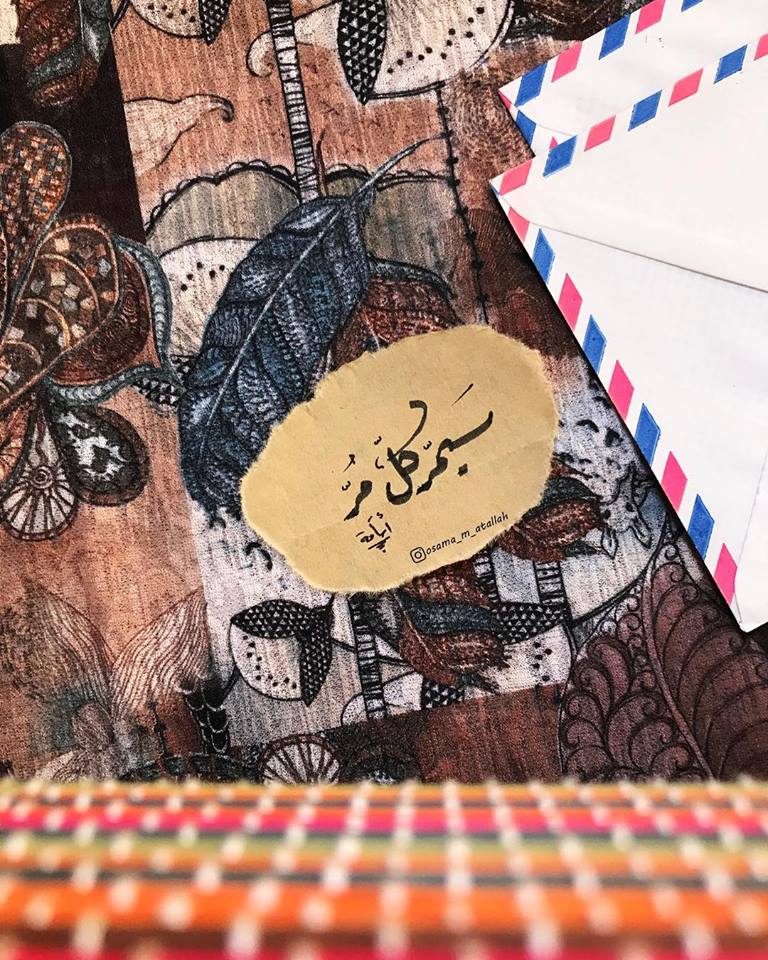 سَيمرّ كلّ مُرّ
أسامة
osama_m_atallah